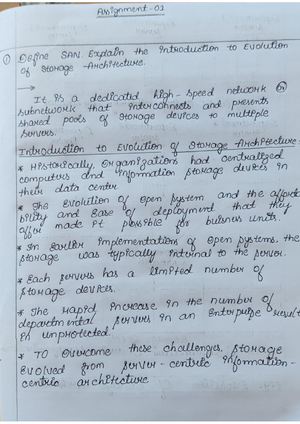 Assignment-01
① Define SAN. Explain the introduction to Evolution
of Storage Architecture.
→
It is a dedicated high-speed network or
subnetwork that interconnects and presents
shared pools of storage devices to multiple
servers.
Introduction to Evolution of Storage Architecture:-
* Historically, Organizations had centralized
computers and information storage devices in
their data center
* The Evolution of open system and the afforda
bility and Ease of deployment that they
offer made it possible for buisness units.
* In Earlier implementations of open systems, the
storage was typically internal to the server.
* Each servers has a limited number of
storage devices.
* The rapid increase in the number of
departmental servers in an Enterprise result
in unprotected.
* To overcome these challenges, storage
Evolved from server-centric information-
centric architecture